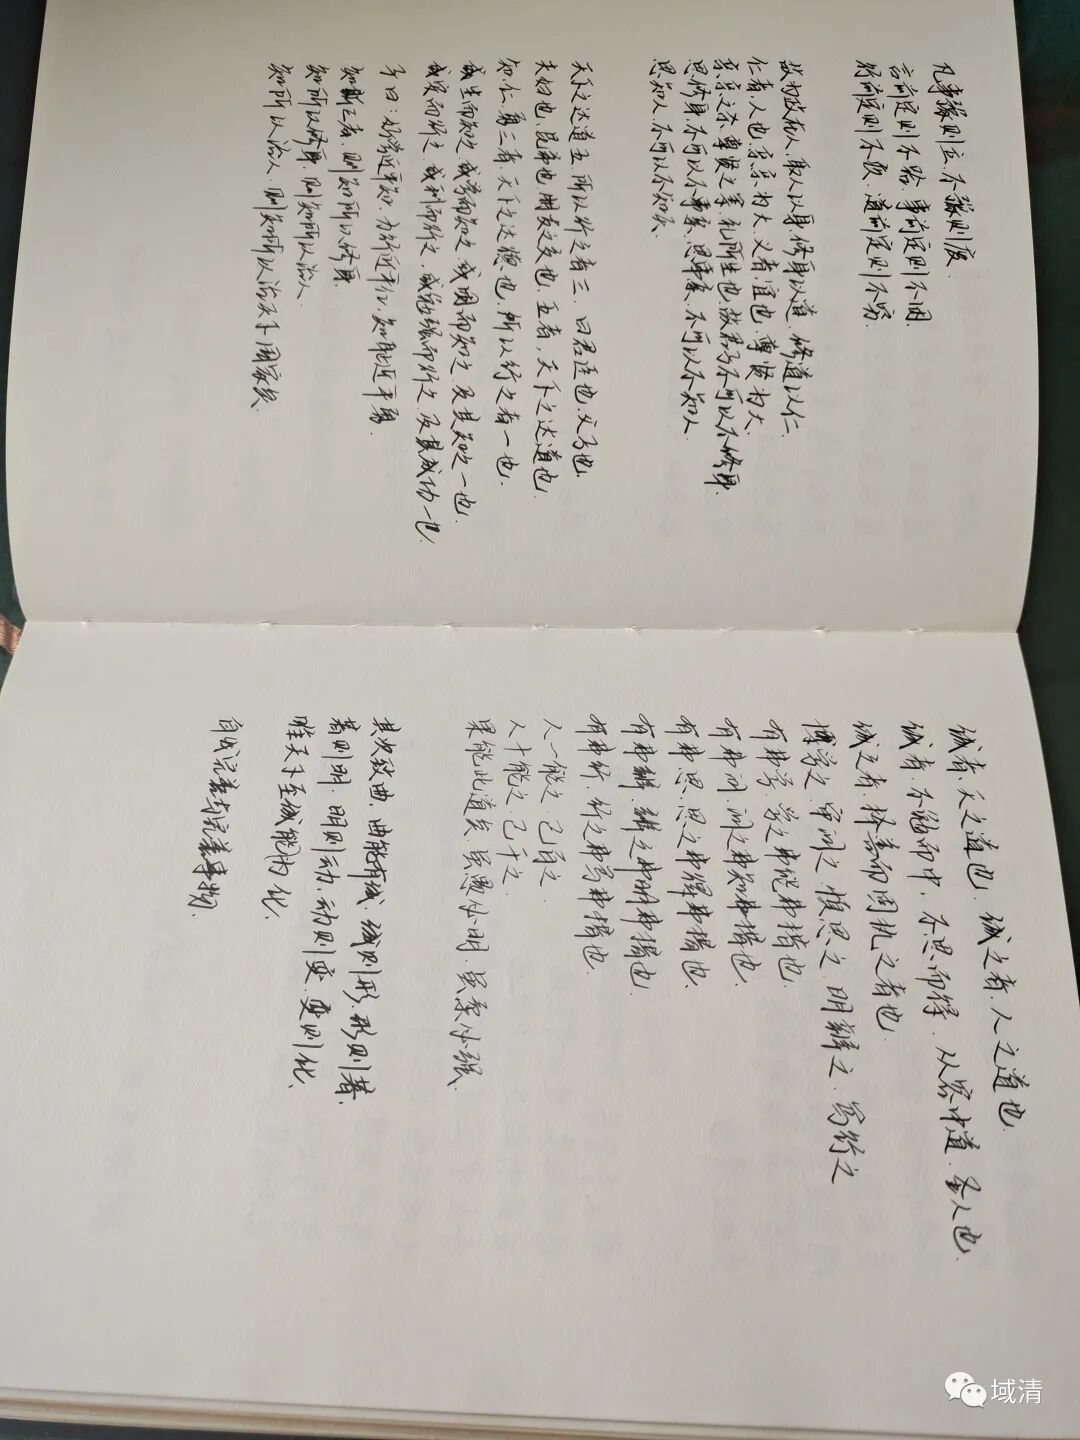 凡事豫则立,不豫则废.
言前定则不跲.事前定则不困.
行前定则不疚.道前定则不穷.
故为政在人.取人以身.修身以道.修道以仁.
仁者.人也.亲亲为大.义者.宜也.尊贤为大.
亲亲之杀.尊贤之等.礼所生也.故君子不可以不修身.
思修身.不可以不事亲.思事亲.不可以不知人.
思知人.不可以不知天.
天下之达道五.所以行之者三.曰君臣也.父子也.
夫妇也.昆弟也.朋友之交也.五者.天下之达道也.
知.仁.勇三者.天下之达德也.所以行之者一也.
或生而知之.或学而知之.或困而知之.及其知之一也.
或安而行之.或利而行之.或勉强而行之.及其成功一也.
子曰:好学近乎知.力行近乎仁.知耻近乎勇.
知斯三者.则知所以修身.
知所以修身.则知所以治人.
知所以治人.则知所以治天下国家矣.
诚者.天之道也.诚之者.人之道也.
诚者.不勉而中.不思而得.从容中道.圣人也.
诚之者.择善而固执之者也.
博学之.审问之.慎思之.明辨之.笃行之
有弗学.学之弗能弗措也.
有弗问.问之弗知弗措也.
有弗思.思之弗得弗措也.
有弗辨.辨之弗明弗措也.
有弗行.行之弗笃弗措也.
人一能之.己百之
人十能之.己千之.
果能此道矣.虽愚必明.虽柔必强.
其次致曲.曲能有诚.诚则形.形则著.
著则明.明则动.动则变.变则化.
唯天下至诚能为化.
自我完善与完善事物.
域清